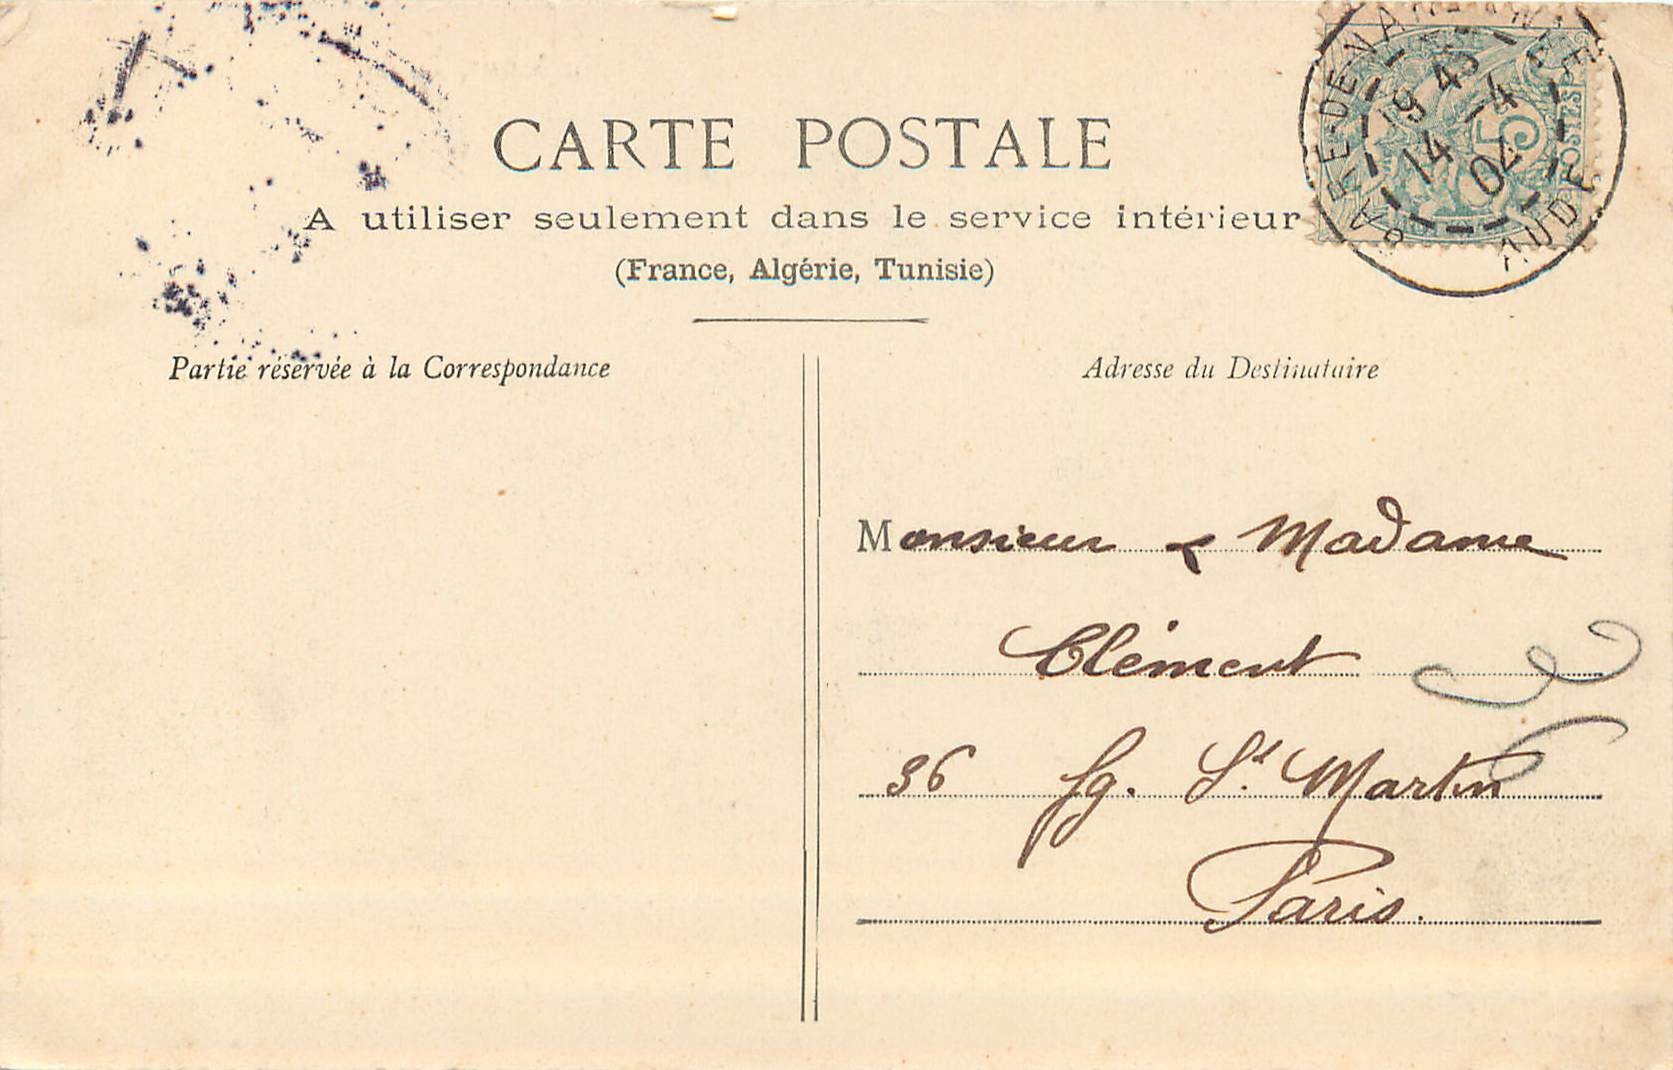 CARTE POSTALE
A utiliser seulement dans le service intérieur
(France, Algérie, Tunisie)
GARE DE NARBONNE
19 45
14 -4
04
AUDE
5
POSTES
Partie réservée à la Correspondance
Adresse du Destinataire
Monsieur & Madame
Clément
36 fg. St. Martin
Paris.